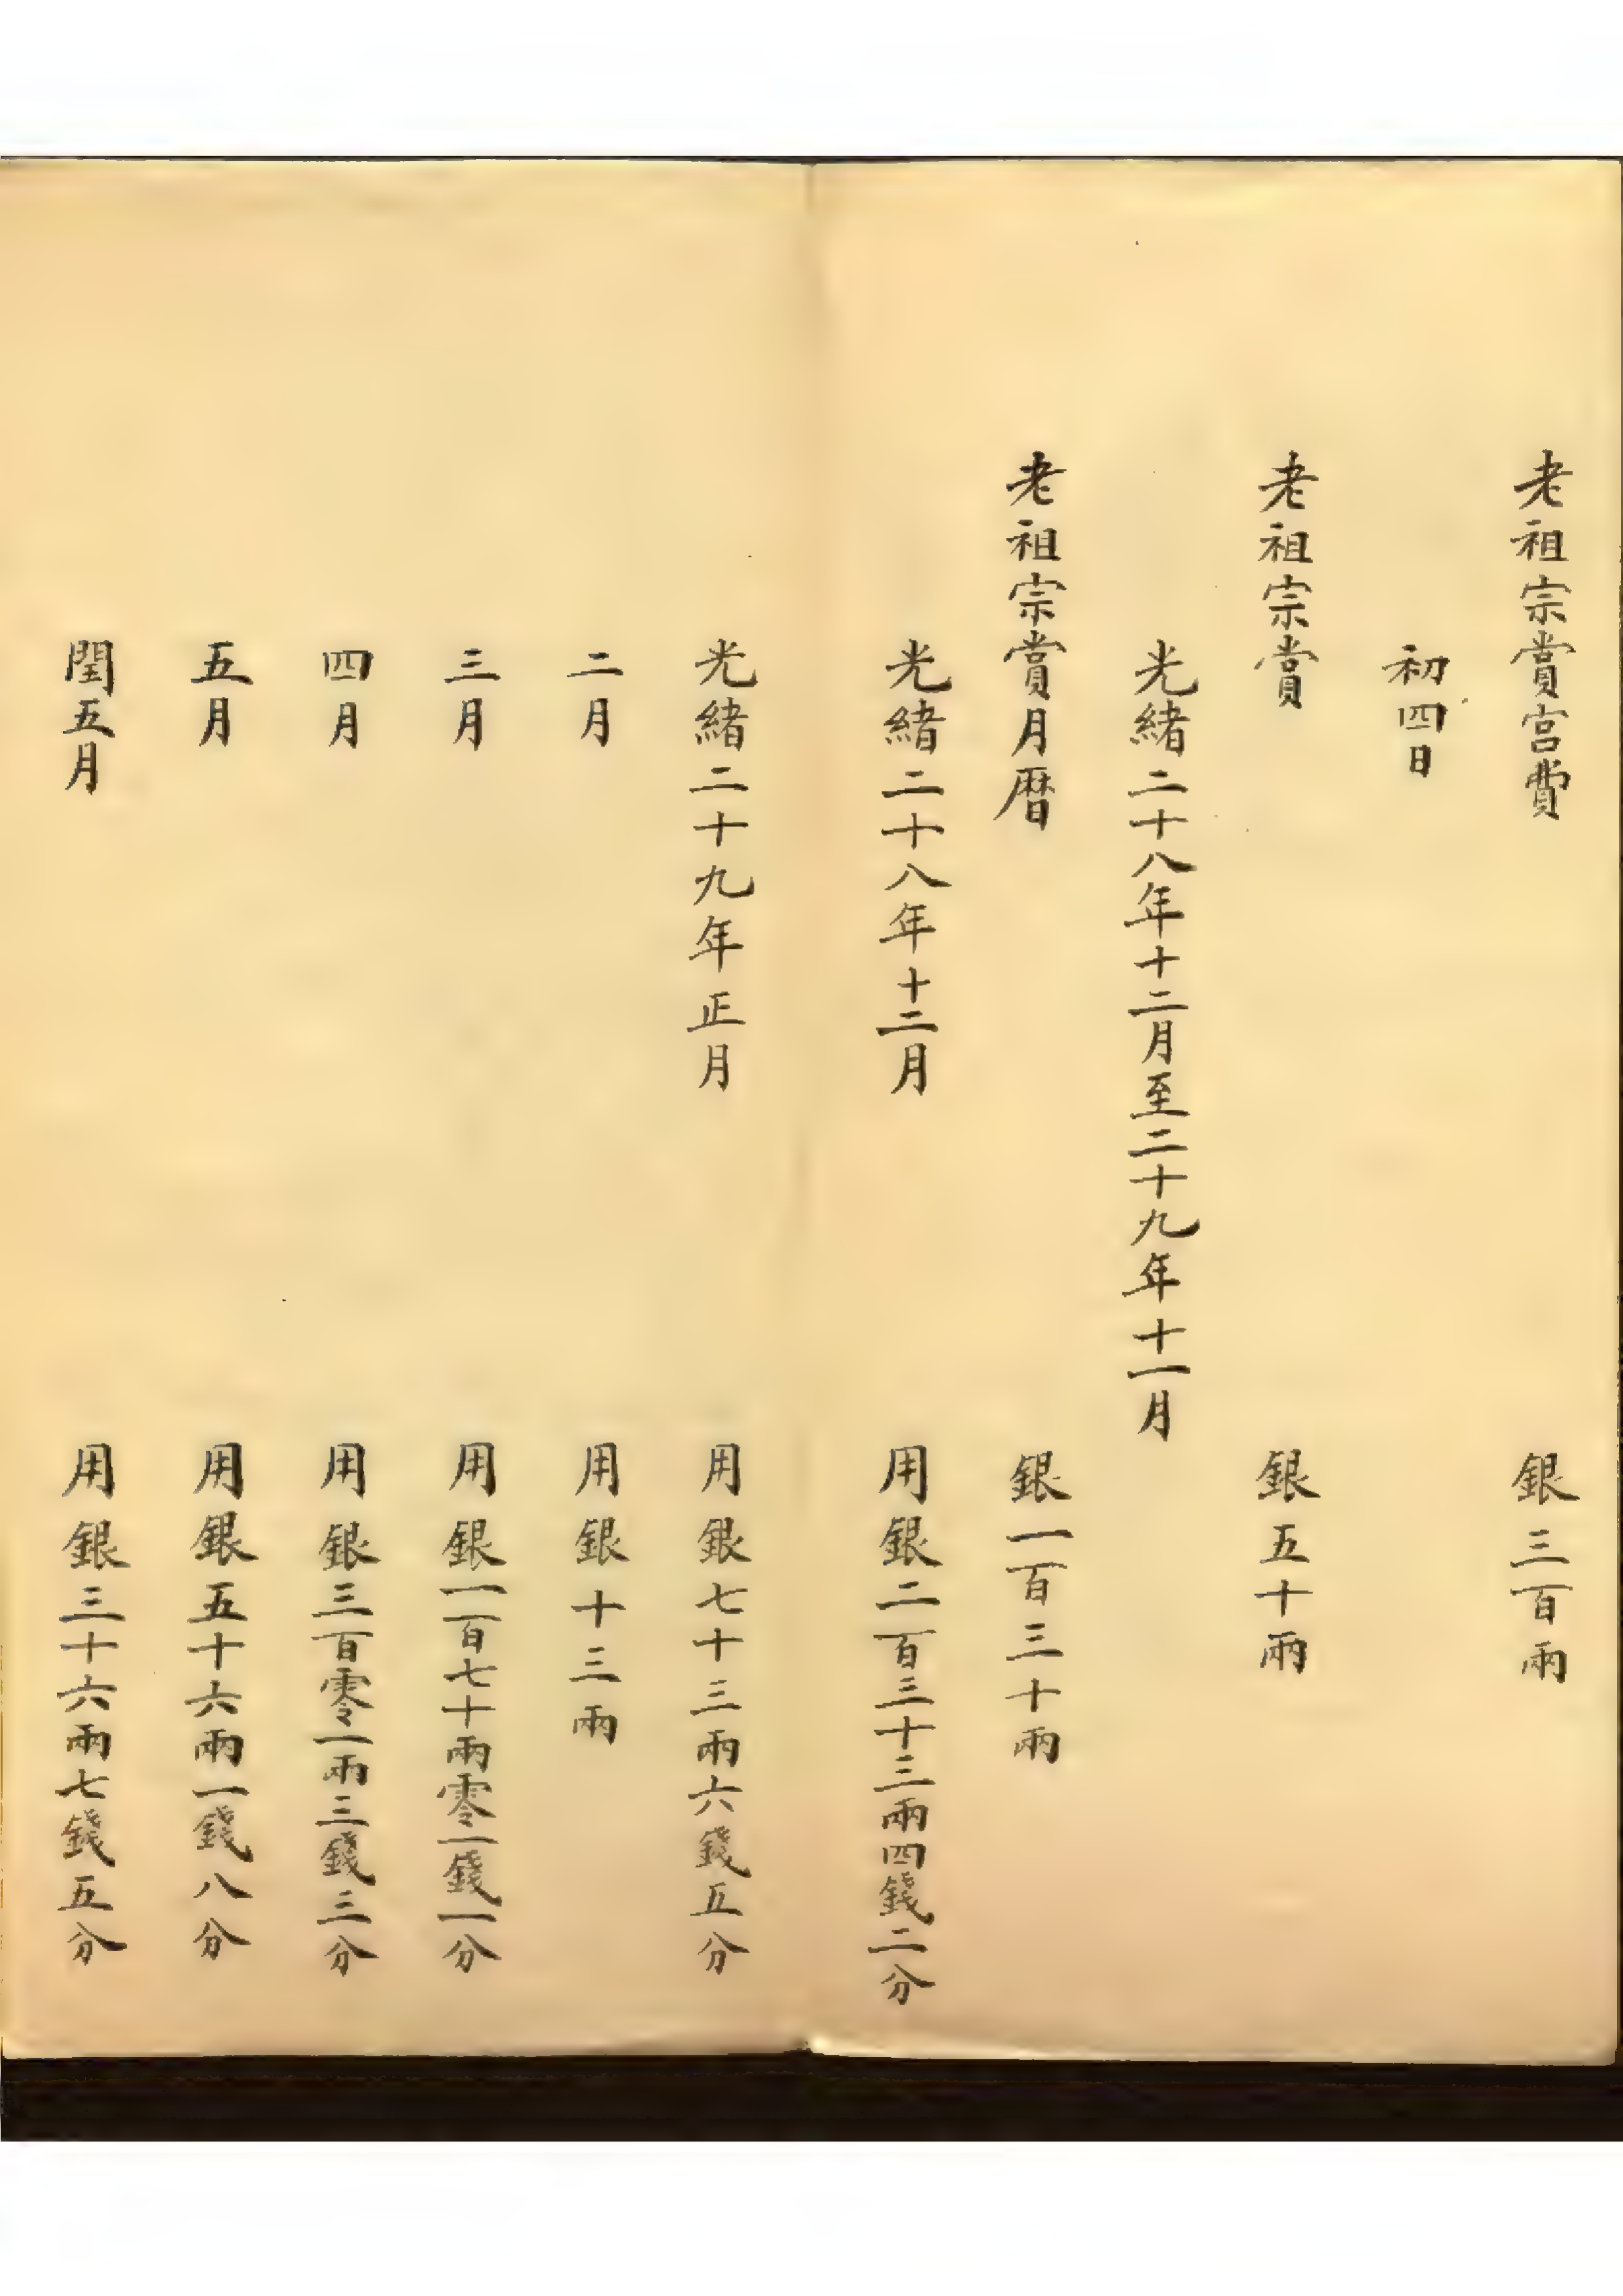 老祖宗賞宮費 銀三百兩
初四日
老祖宗賞 銀五十兩
光緒二十八年十二月至二十九年十一月
老祖宗賞月曆 銀一百三十兩
光緒二十八年十二月 用銀二百三十三兩四錢二分
光緒二十九年正月 用銀七十三兩六錢五分
二月 用銀十三兩
三月 用銀一百七十兩零一錢一分
四月 用銀三百零一兩三錢三分
五月 用銀五十六兩一錢八分
閏五月 用銀三十六兩七錢五分